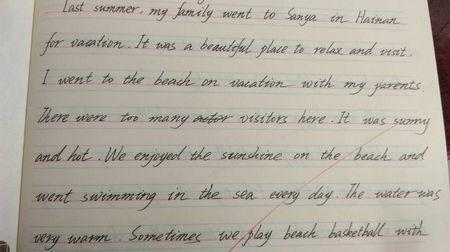 Last summer, my family went to Sanya in Hainan
for vacation. It was a beautiful place to relax and visit.
I went to the beach on vacation with my parents.
There were too many actor visitors here. It was sunny
and hot. We enjoyed the sunshine on the beach and
went swimming in the sea every day. The water was
very warm. Sometimes we play beach basketball with